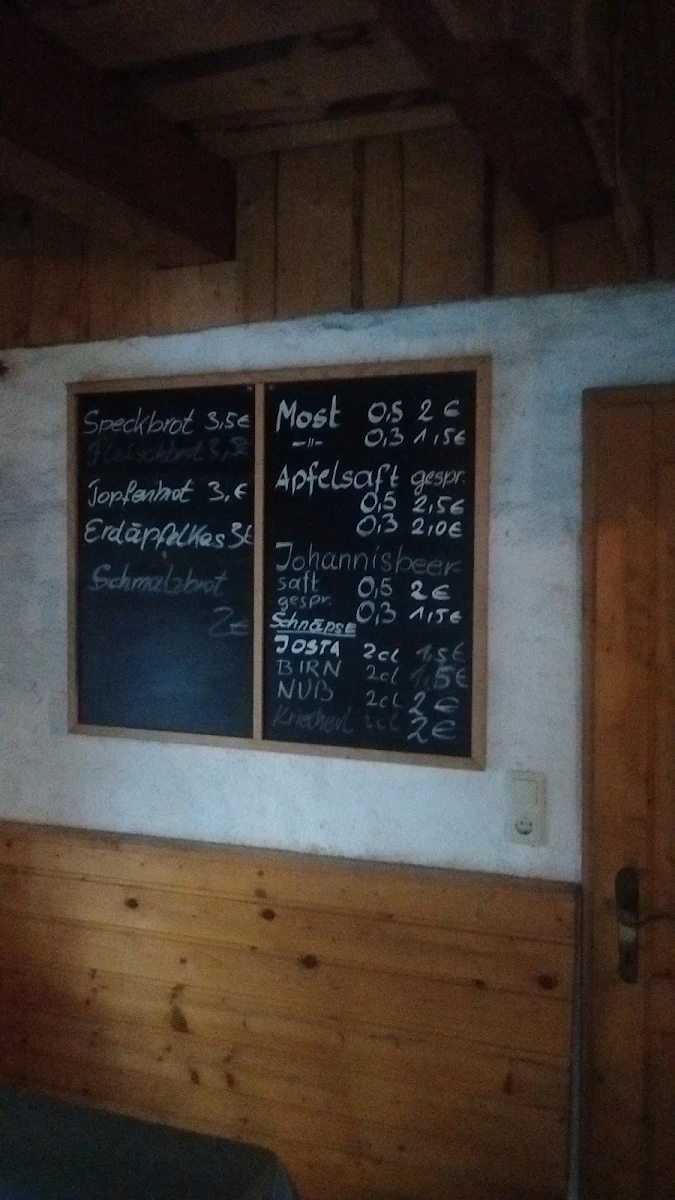 Speckbrot 3,5€
Fleischbrot 3,5€
Topfenbrot 3,€
Erdäpfelkas 3€
Schmalzbrot
2€
Most 0,5 2 €
-"- 0,3 1,5€
Apfelsaft gespr.
0,5 2,5€
0,3 2,0€
Johannisbeer
saft 0,5 2€
gespr. 0,3 1,5€
Schnäpse
JOSTA 2cl 1,5€
BIRN 2cl 1,5€
NUß 2cl 2€
Kriecherl 2cl 2€